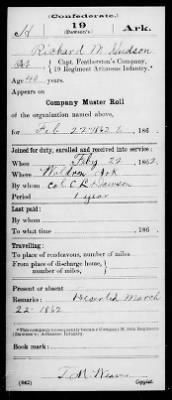 (Confederate.)
H 19 Ark.
(Dawson's)
Richard M. Hudson
Pvt, Capt. Featherston's Company,
19 Regiment Arkansas Infantry.*
Age 40 years.
Appears on
Company Muster Roll
of the organization named above,
for Feb 22 1862, 186 .
Joined for duty, enrolled and entered into service:
When Feby 22, 1862.
Where Waldron Ark
By whom Col. C. L. Dawson
Period 1 year
Last paid:
By whom
To what time , 186 .
Travelling:
To place of rendezvous, number of miles
From place of discharge home,
number of miles
Present or absent
Remarks: Deserted March
22 1862
Book mark:
(642) Copyist.